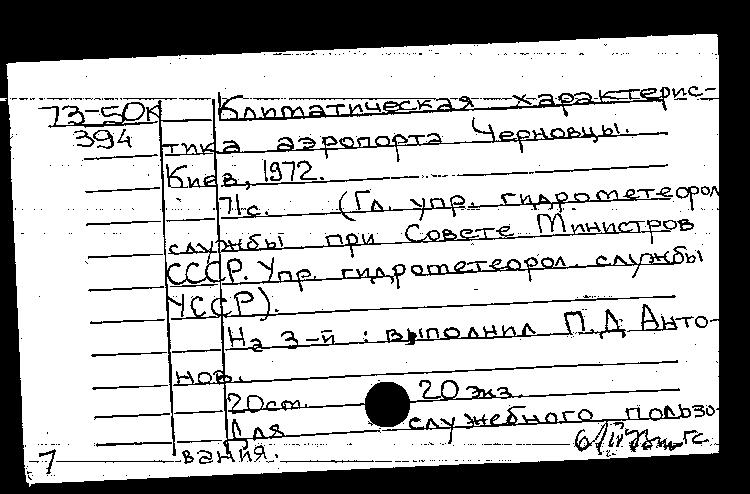 73-50к Климатическая характерис-
394 тика аэропорта Черновцы.
Киев, 1972.
71с. (Гл. упр. гидрометеорол
службы при Совете Министров
СССР. Упр. гидрометеорол. службы
УССР).
На 3-й : выполнил П.Д Анто-
нов.
20ст. 20 экз.
Для служебного пользо-
вания.
7